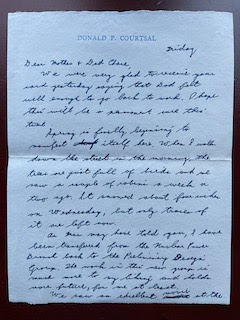 DONALD P. COURTSAL
Friday
Dear Mother & Dad Chase,
We were very glad to receive your
card yesterday saying that Dad felt
well enough to go back to work. I hope
this will be a permanent cure this
time.
Spring is finally beginning to
manifest itself here. When I walk
down the street in the morning, the
trees are just full of birds and we
saw a couple of robins a week or
two ago. It snowed about four inches
on Wednesday, but only traces of
it are left now.
As Man may have told you, I have
been transferred from the Nuclear Power
Branch back to the Preliminary Design
Group. The work in this new group is
much more to my liking and holds
more future, for me at least.
We saw an excellent movie at the